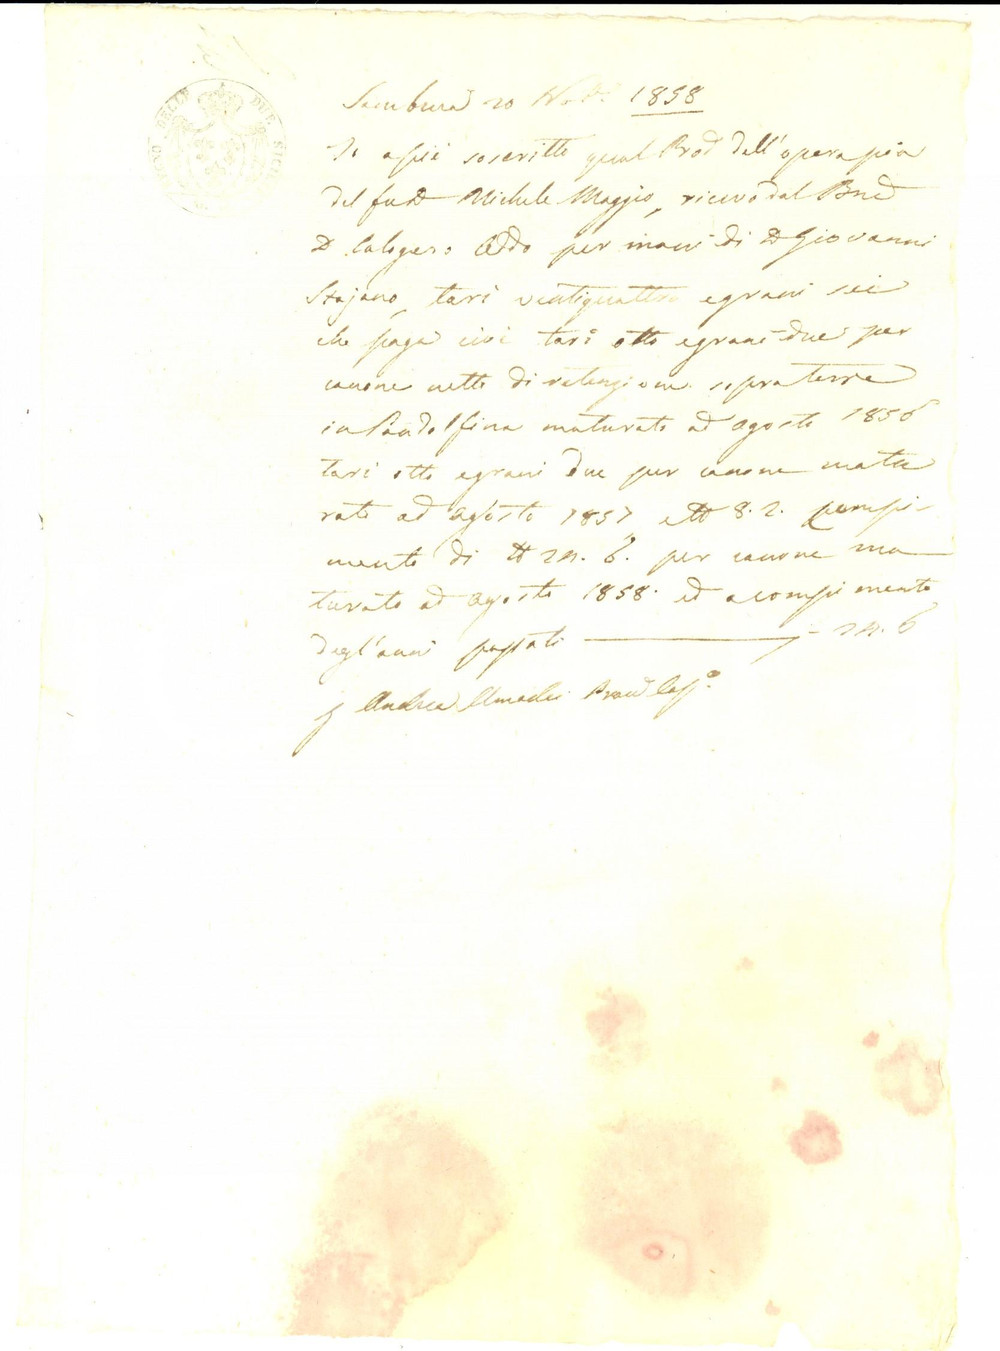 REGNO DELLE DUE SICILIE
Sambuca 20 Nov.e 1858
Io a piè soscritto qual Prod dell'opera pia
del fu D Michele Maggio, ricevo dal Bne
D Calogero Oddo per mani di D Giovanni
Stajano, tari ventiquattro e grani sei
che paga cioè tari otto e grani due per
canone netto di ritenzione sopra terre
in Pandolfina maturato ad agosto 1856
tari otto e grani due per canone matu
rato ad agosto 1857, e tt 8.2. compi-
mento di tt 24.6. per canone ma
turato ad agosto 1858. ed a compimento
degl'anni passati — 24.6
Andrea Amodei